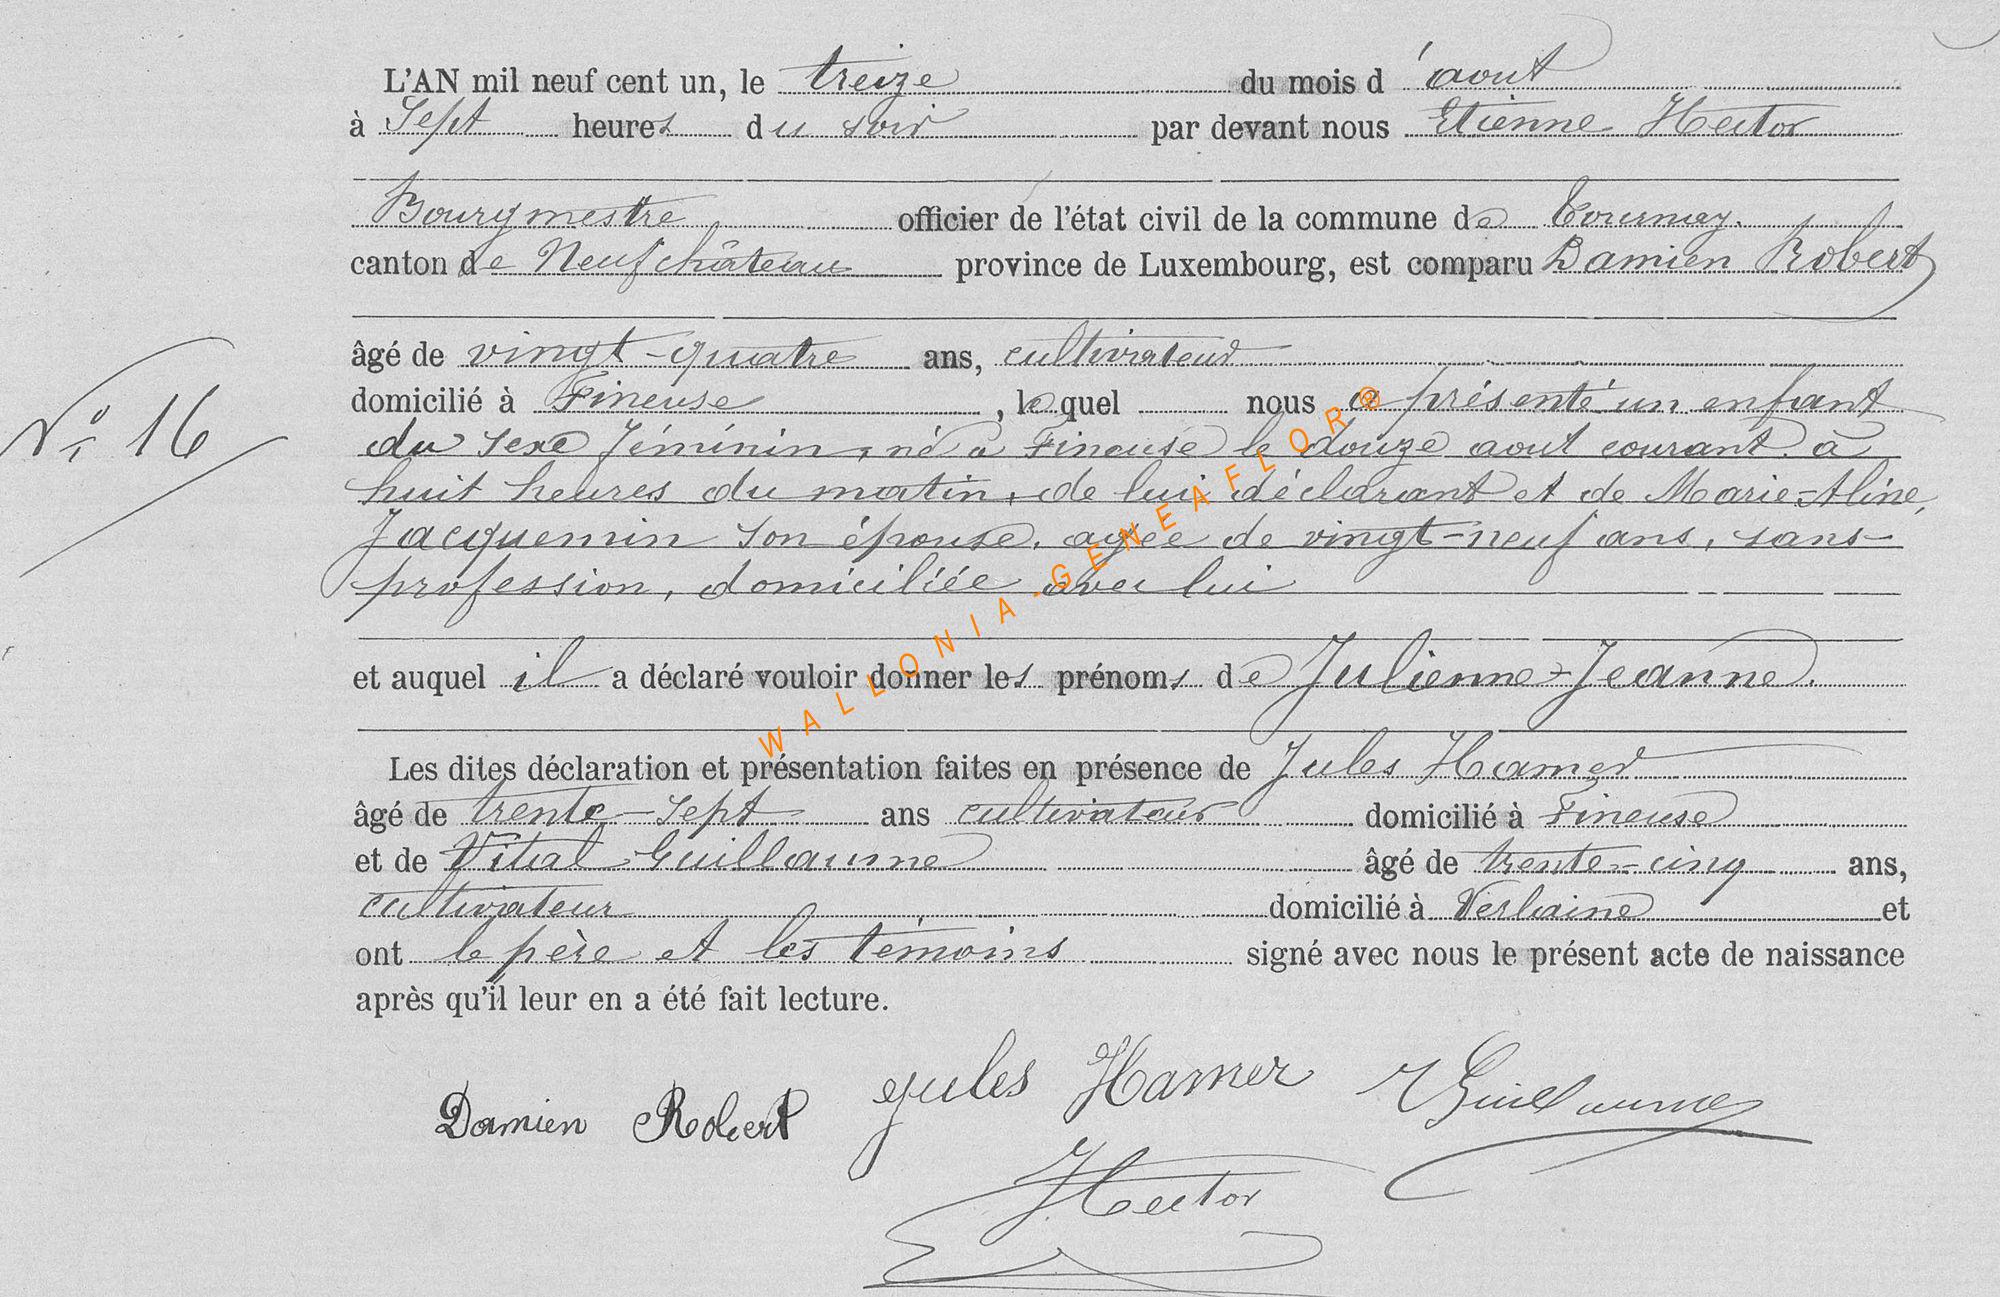 L'AN mil neuf cent un, le treize du mois d'aout
à Sept heures du soir par devant nous Etienne Hector
Bourgmestre officier de l'état civil de la commune de Tournay.
canton de Neufchâteau province de Luxembourg, est comparu Damien Robert
âgé de vingt-quatre ans, cultivateur
domicilié à Fineuse, lequel nous a présenté un enfant
N° 16
du sexe féminin, né à Fineuse le douze aout courant à
huit heures du matin, de lui déclarant et de Marie-Aline,
Jacquemin son épouse, agée de vingt-neuf ans, sans
profession, domiciliée avec lui
et auquel il a déclaré vouloir donner les prénoms de Julienne-Jeanne.
Les dites déclaration et présentation faites en présence de Jules Hamer
âgé de trente-sept ans cultivateur domicilié à Fineuse
et de Vital Guillaume âgé de trente-cinq ans,
cultivateur domicilié à Verlaine et
ont le père et les témoins signé avec nous le présent acte de naissance
après qu'il leur en a été fait lecture.
Damien Robert Jules Hamer V Guillaume
Hector
WALLONIA-GENEAFLOR®